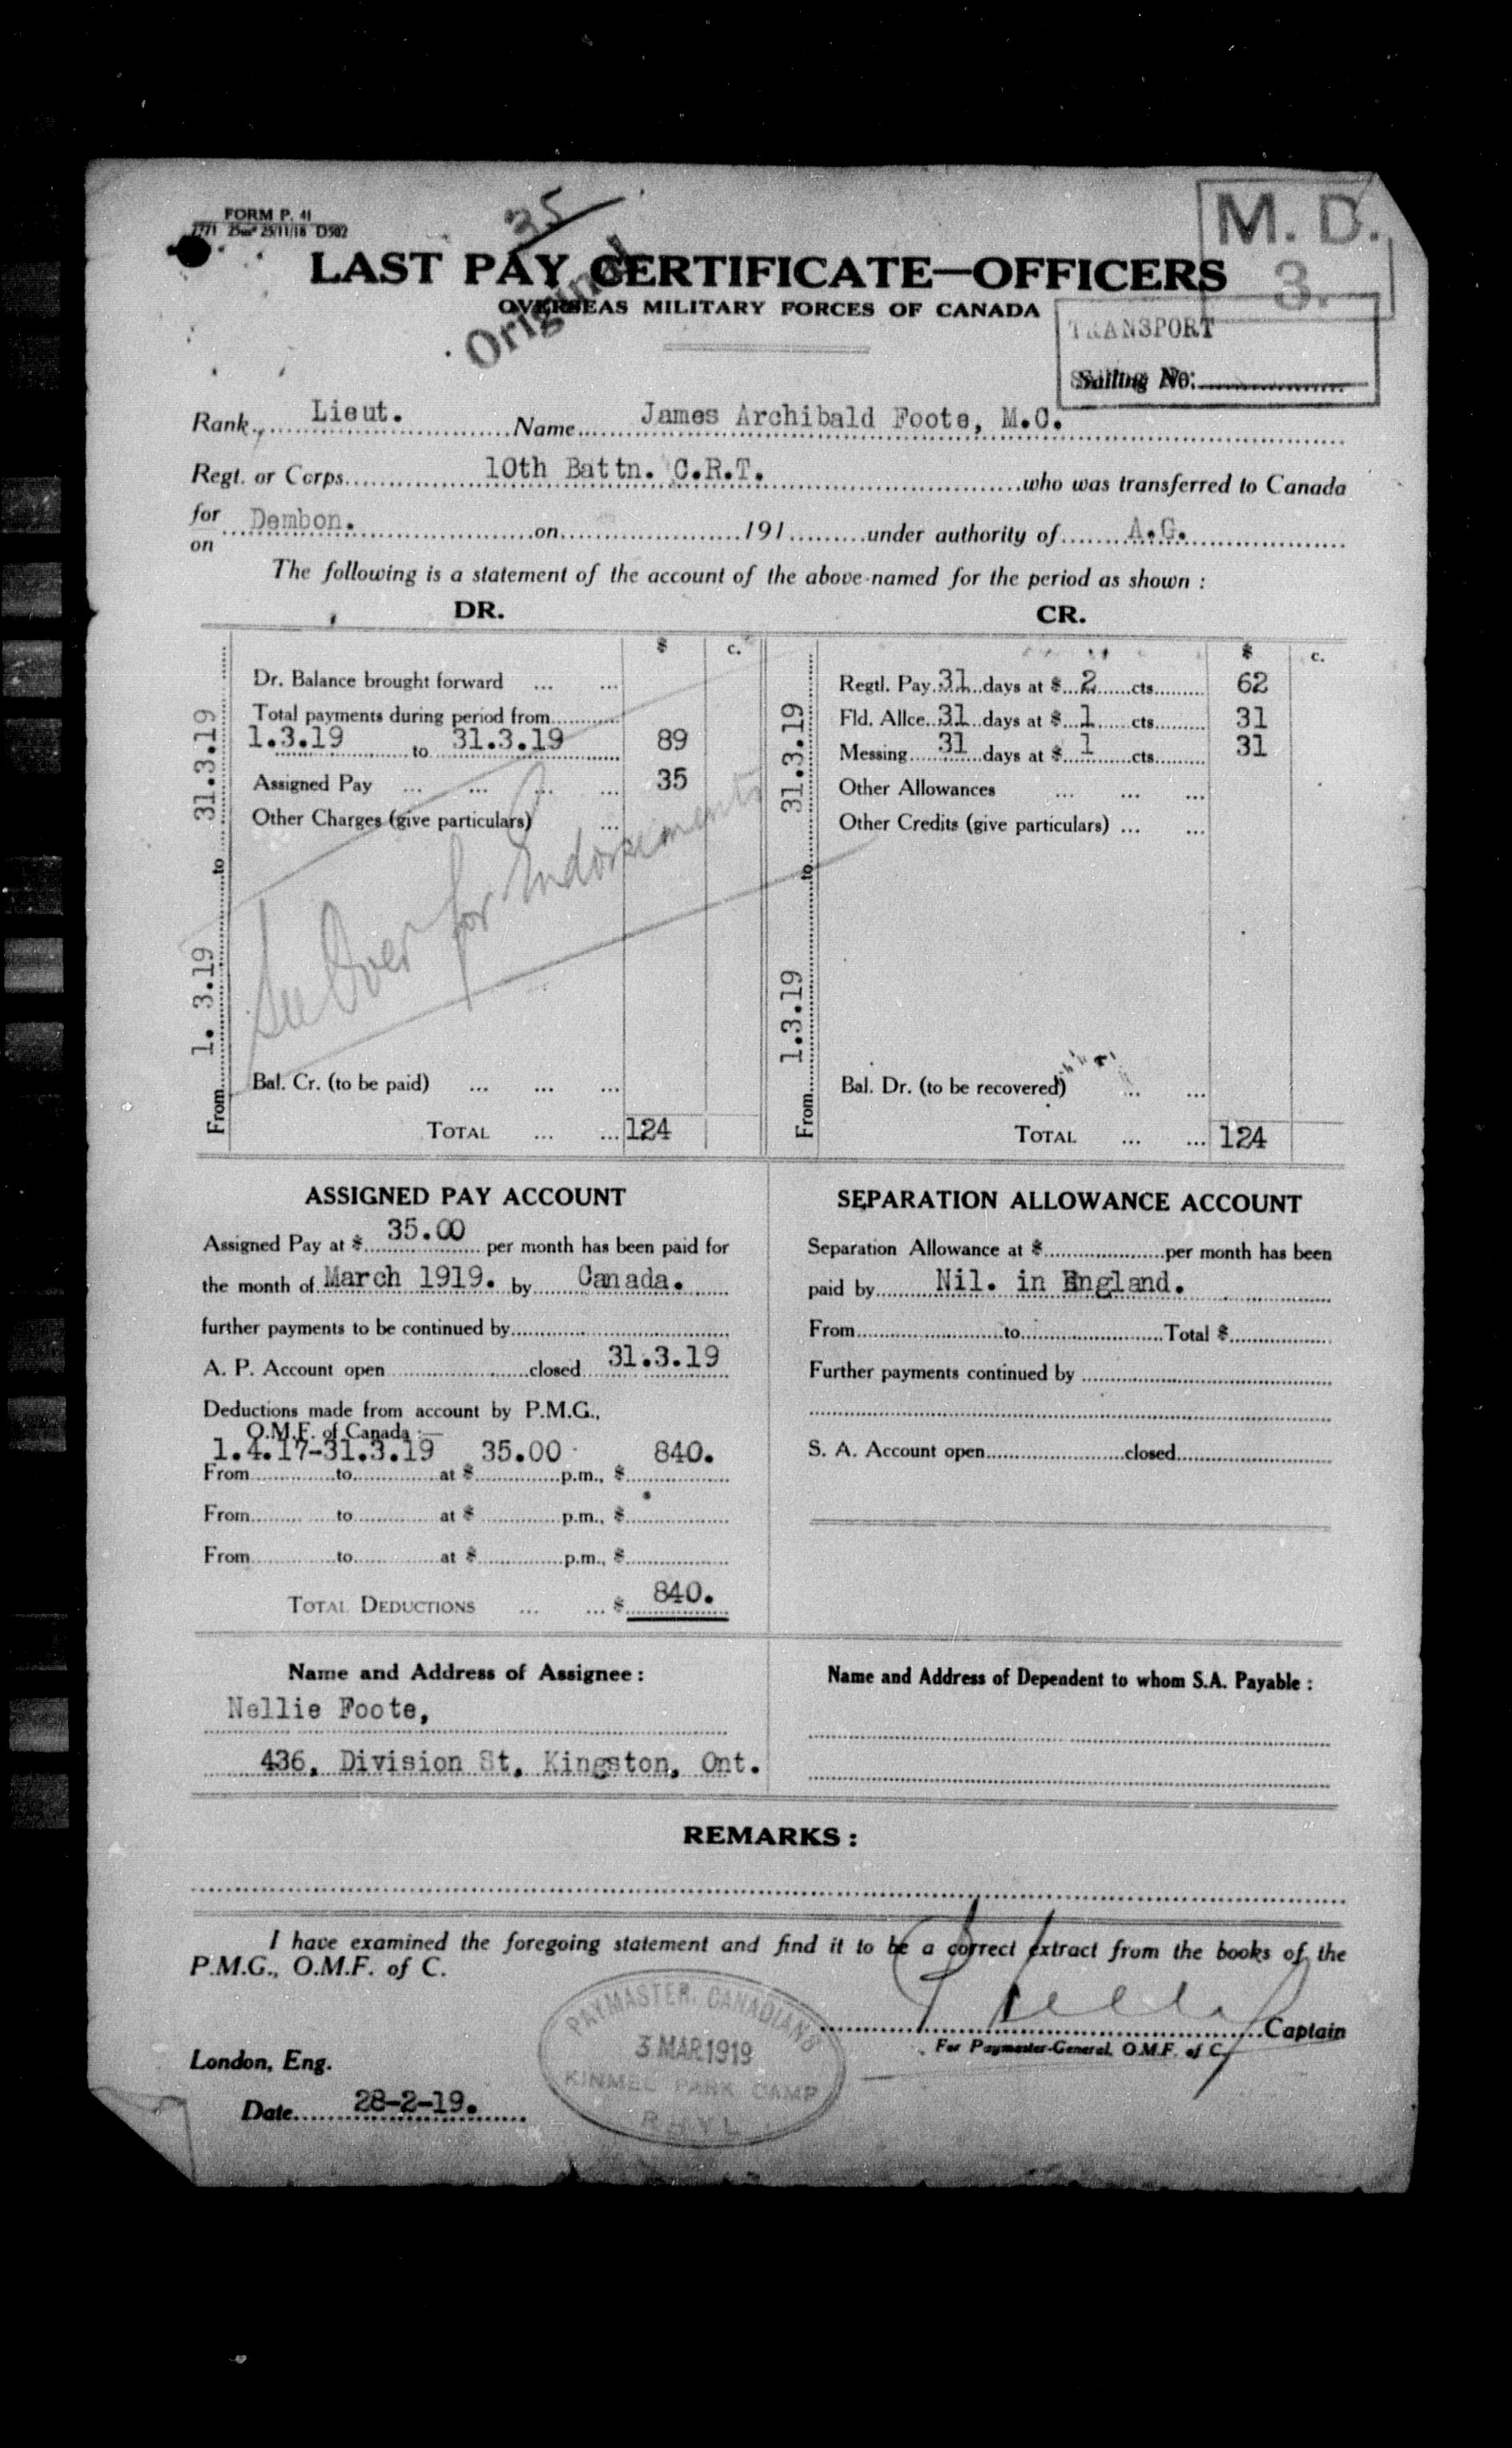 FORM P. 41
7771 25m 25/11/18 D502
35
Original
M. D.
3.
LAST PAY CERTIFICATE—OFFICERS
OVERSEAS MILITARY FORCES OF CANADA
TRANSPORT
Sailing No:
Rank Lieut. Name James Archibald Foote, M.C.
Regt. or Corps 10th Battn. C.R.T. who was transferred to Canada
for on Dembon. on 191 under authority of A.G.
The following is a statement of the account of the above-named for the period as shown :
DR.
$ c.
From 1. 3.19 to 31.3.19
Dr. Balance brought forward ... ...
Total payments during period from
1.3.19 to 31.3.19 89
Assigned Pay ... ... ... ... 35
Other Charges (give particulars) ...
See Over for Endorsements
Bal. Cr. (to be paid) ... ... ...
TOTAL ... ... 124
CR.
$ c.
From 1.3.19 to 31.3.19
Regtl. Pay 31 days at $ 2 cts. 62
Fld. Allce. 31 days at $ 1 cts. 31
Messing 31 days at $ 1 cts. 31
Other Allowances ... ... ...
Other Credits (give particulars) ... ...
Bal. Dr. (to be recovered) ... ...
TOTAL ... ... 124
ASSIGNED PAY ACCOUNT
Assigned Pay at $ 35.00 per month has been paid for
the month of March 1919. by Canada.
further payments to be continued by
A. P. Account open closed 31.3.19
Deductions made from account by P.M.G.,
O.M.F. of Canada :—
1.4.17-31.3.19 35.00 840.
From to at $ p.m., $
From to at $ p.m., $
From to at $ p.m., $
TOTAL DEDUCTIONS ... ... $ 840.
SEPARATION ALLOWANCE ACCOUNT
Separation Allowance at $ per month has been
paid by Nil. in England.
From to Total $
Further payments continued by
S. A. Account open closed
Name and Address of Assignee :
Nellie Foote,
436, Division St, Kingston, Ont.
Name and Address of Dependent to whom S.A. Payable :
REMARKS :
I have examined the foregoing statement and find it to be a correct extract from the books of the
P.M.G., O.M.F. of C.
Captain
For Paymaster-General, O.M.F. of C.
PAYMASTER, CANADIANS
3 MAR 1919
KINMEL PARK CAMP
RHYL
London, Eng.
Date 28-2-19.